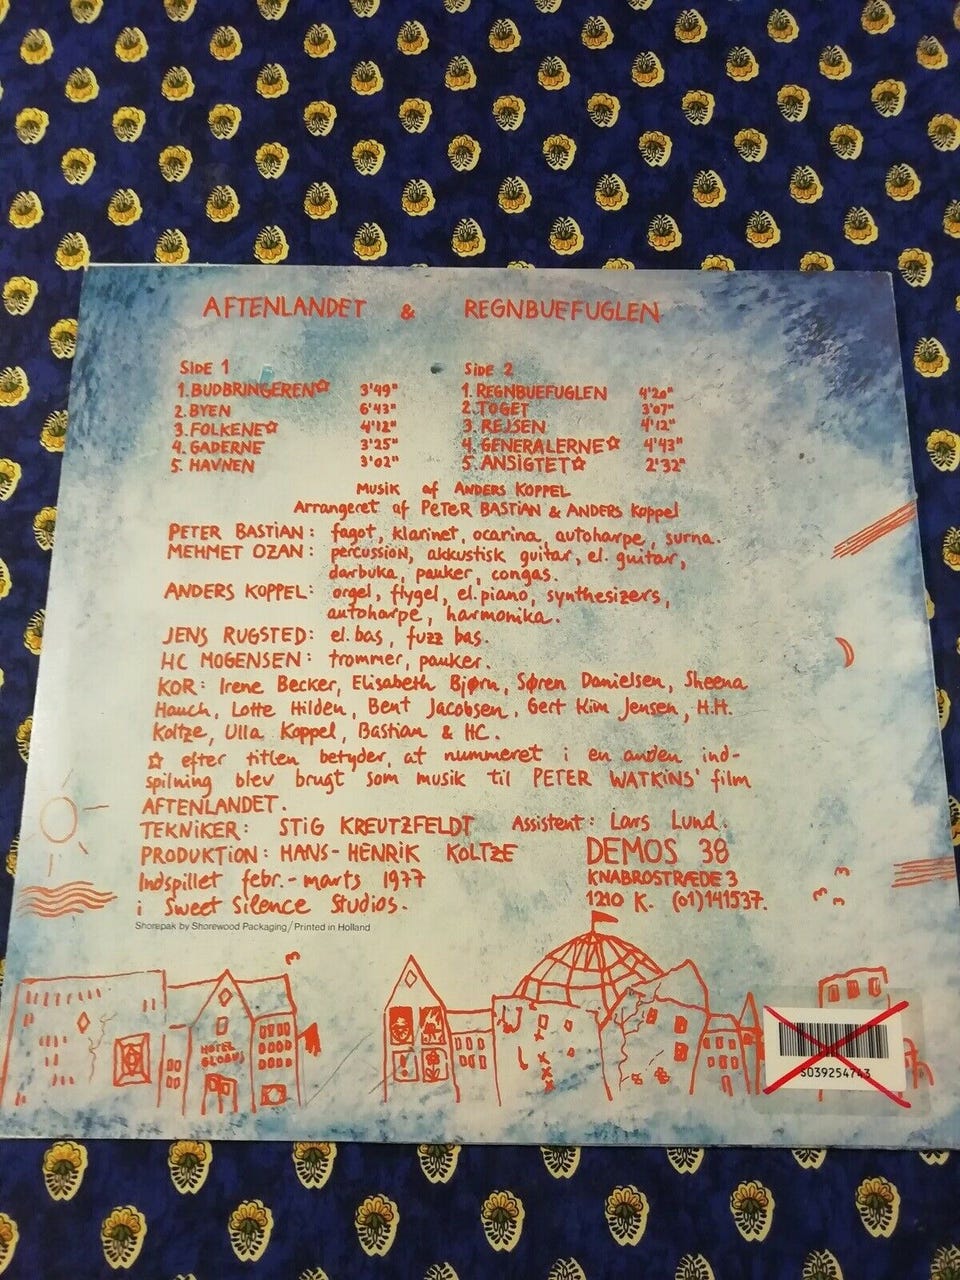 AFTENLANDET & REGNBUEFUGLEN
SIDE 1
1. BUDBRINGEREN☆ 3'49"
2. BYEN 6'43"
3. FOLKENE☆ 4'12"
4. GADERNE 3'25"
5. HAVNEN 3'02"
SIDE 2
1. REGNBUEFUGLEN 4'20"
2. TOGET 3'07"
3. REJSEN 4'12"
4. GENERALERNE☆ 4'43"
5. ANSIGTET☆ 2'32"
Musik af ANDERS KOPPEL
Arrangeret af PETER BASTIAN & ANDERS Koppel
PETER BASTIAN: fagot, klarinet, ocarina, autoharpe, surna.
MEHMET OZAN: percussion, akkustisk guitar, el. guitar,
darbuka, pauker, congas.
ANDERS KOPPEL: orgel, flygel, el. piano, synthesizers,
autoharpe, harmonika.
JENS RUGSTED: el. bas, fuzz bas.
HC MOGENSEN: trommer, pauker.
KOR: Irene Becker, Elisabeth Bjørn, Søren Danielsen, Sheena
Hauch, Lotte Hilden, Bent Jacobsen, Gert Kim Jensen, H.H.
Koltze, Ulla Koppel, Bastian & HC.
☆ efter titlen betyder, at nummeret i en anden ind-
spilning blev brugt som musik til PETER WATKINS' film
AFTENLANDET.
TEKNIKER: STIG KREUTZFELDT Assistent: Lars Lund.
PRODUKTION: HANS-HENRIK KOLTZE
Indspillet febr.-marts 1977
i Sweet Silence Studios.
DEMOS 38
KNABROSTRÆDE 3
1210 K. (01)141537.
Shorepak by Shorewood Packaging/Printed in Holland
HOTEL
GLOBUS
S039254743